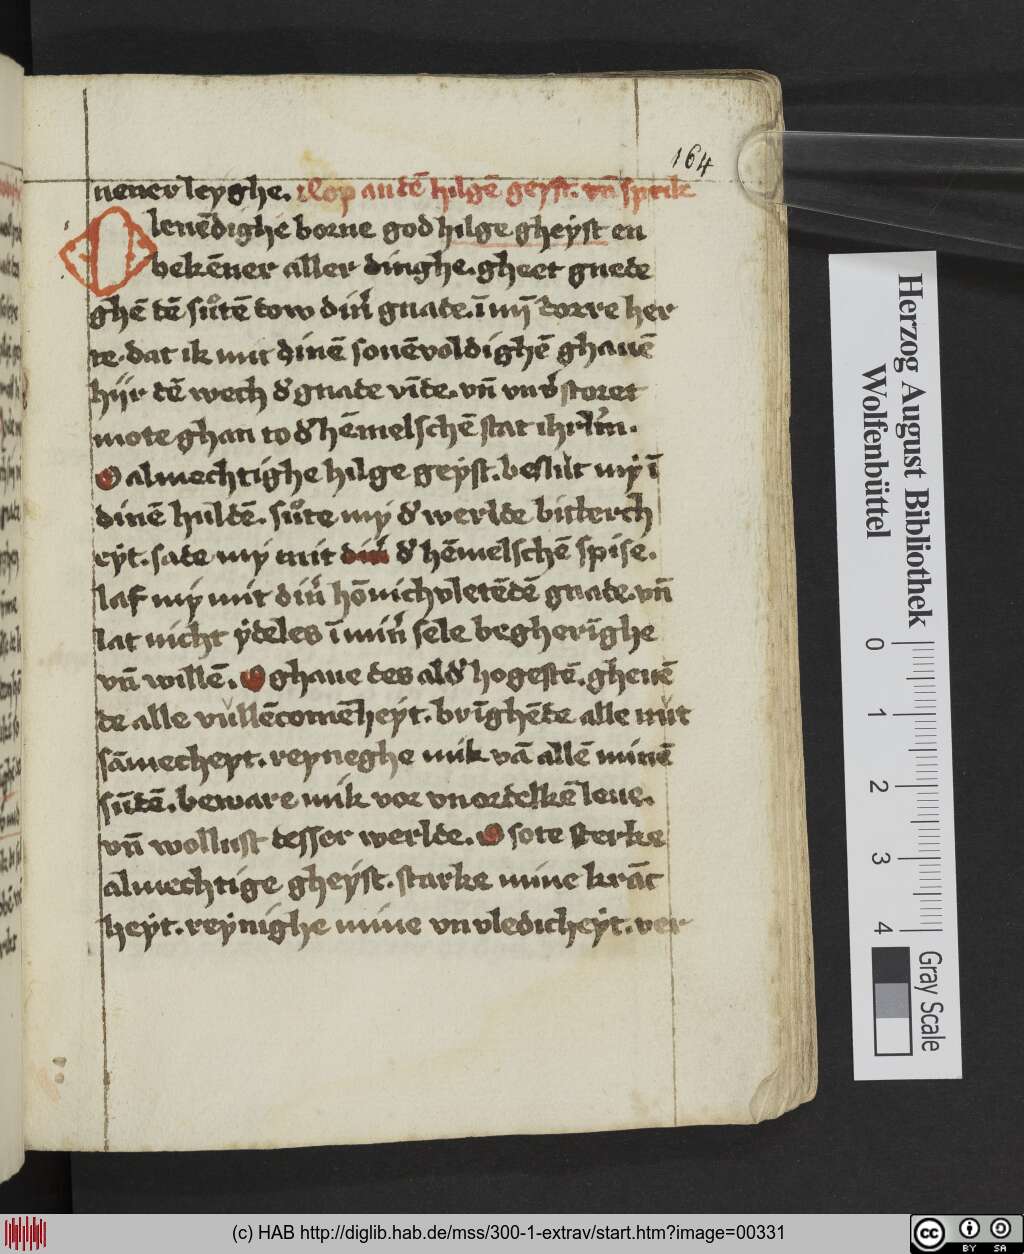 164
nener leyghe. Rop an dē hilgē geyst. vn̄ sprik
O leuēdighe borne god hilge gheyst en
bekēner aller dinghe. gheet guede
ghē dē sůtē dow dinr̄ gnade. ī mī dorre her
te. dat ik mit dinē souēvoldighē ghauē
hiir dē wech d' gnade vīde. vn̄ vnv'storet
mote ghan to d' hēmelschē stat ihrl'm.
O almechtighe hilge geyst. beslut my ī
dinē huldē. sůte my d' werlde bitterch
eyt. sade my mit d' hēmelschē spise.
laf my mit dinr̄ hōnichvletēdē gnade. vn̄
lat nicht ydeles ī minr̄ sele begherīghe
vn̄ willē. O ghaue des ald' hogestē. gheuē
de alle vullēcomēheyt. brīghēde alle nut
sāmecheyt. reyneghe mik vā allē minē
sūdē. beware mik vor vnordelkē leue.
vn̄ wollust desser werlde. O sote sterke
almechtige gheyst. starke mine krāc
heyt. reynighe mine vnvledicheyt. ver
Herzog August Bibliothek
Wolfenbüttel
0 1 2 3 4
Gray Scale
(c) HAB http://diglib.hab.de/mss/300-1-extrav/start.htm?image=00331
cc BY SA